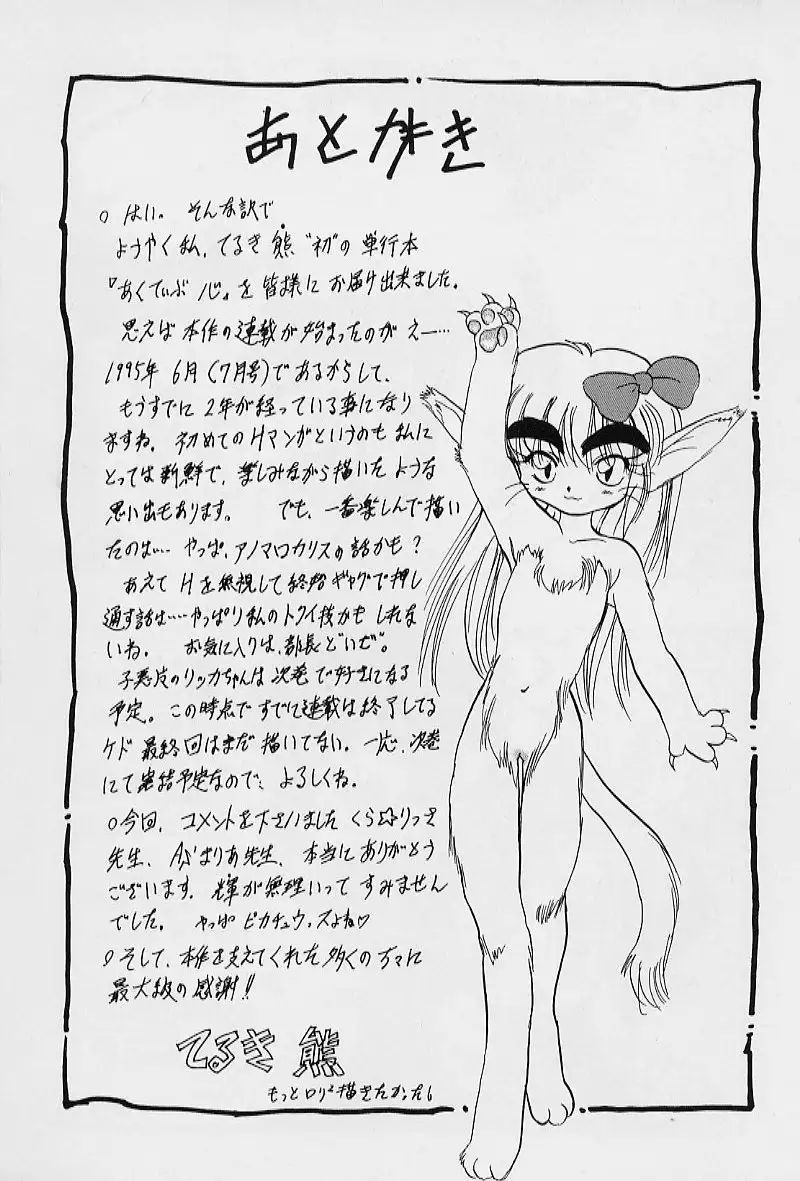 あとがき
○はい。そんな訳で
ようやく私、てるき熊“初”の単行本
『あくてぃぶ心』を皆様にお届け出来ました。
思えば本作の連載が始まったのがえー…
1995年6月(7月号)であるからして、
もうすでに2年が経っている事になり
ますね。初めてのHマンガというのも私に
とっては新鮮で、楽しみながら描いたような
思い出もあります。でも、一番楽しんで描い
たのは…やっぱ、アノマロカリスの話かも?
あえてHを無視して終始ギャグで押し
通す話は……やっぱり私のトクイ技かもしれな
いね。お気に入りは、部長どいぜ。
子悪党のリッカちゃんは次巻で好きになる
予定。この時点ですでに連載は終了してる
ケド最終回はまだ描いてない。一応、次巻
にて完結予定なので、よろしくね。
○今回、コメントを下さいましたくら☆りっさ
先生、Aぶまりあ先生、本当にありがとう
ございます。輝が無理いってすみません
でした。やっぱピカチュウ、スよね♡
○そして、本作を支えてくれた多くの方々に
最大級の感謝!!
てるき熊
もっとロリ²描きたかった